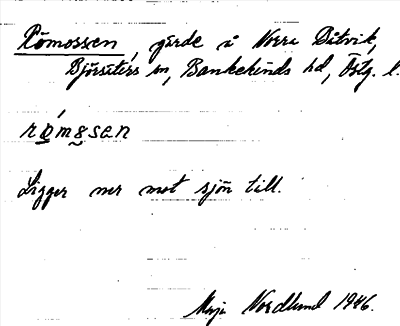 Römossen, gärde å Norra Båtvik,
Björsäters sn, Bankekinds hd, Östg. l.
rómssen
Ligger ner mot sjön till.
Maja Nordlund 1946.